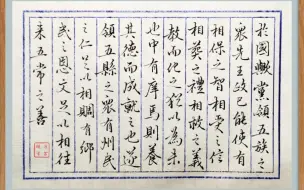 於國歟黨領五族之
眾先王政已能使有
相保之智相受之信
相葬之禮相救之義
教而化之猶以為未
也中有庠焉則養
其德而成就之也遂
領五縣之眾有州民
之仁足以相賙有鄉
民之恩又足以相往
來五常之善